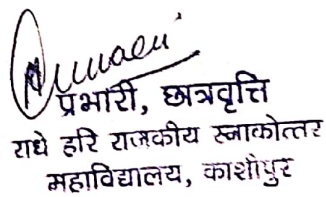 प्रभारी, छात्रवृत्ति
राधे हरि राजकीय स्नाकोत्तर
महाविद्यालय, काशीपुर